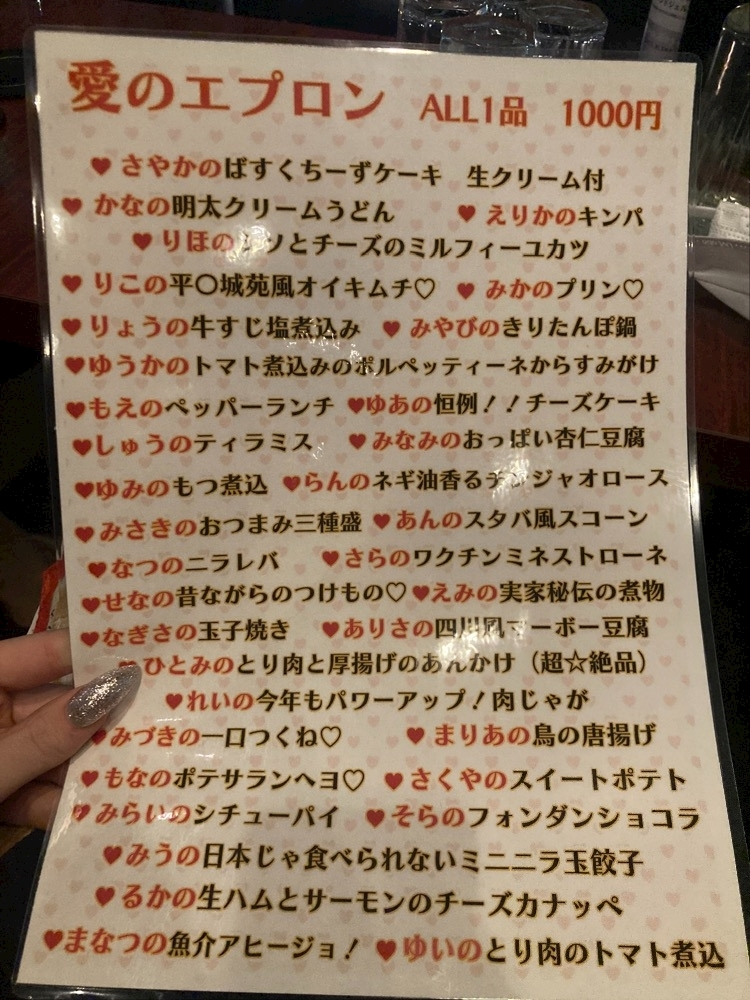 愛のエプロン ALL1品 1000円
♥さやかのばすくちーずケーキ 生クリーム付
♥かなの明太クリームうどん ♥えりかのキンパ
♥りほの ソとチーズのミルフィーユカツ
♥りこの平〇城苑風オイキムチ♡ ♥みかのプリン♡
♥りょうの牛すじ塩煮込み ♥みやびのきりたんぽ鍋
♥ゆうかのトマト煮込みのポルペッティーネからすみがけ
♥もえのペッパーランチ ♥ゆあの恒例!!チーズケーキ
♥しゅうのティラミス ♥みなみのおっぱい杏仁豆腐
♥ゆみのもつ煮込 ♥らんのネギ油香るチンジャオロース
♥みさきのおつまみ三種盛 ♥あんのスタバ風スコーン
♥なつのニラレバ ♥さらのワクチンミネストローネ
♥せなの昔ながらのつけもの♡ ♥えみの実家秘伝の煮物
♥なぎさの玉子焼き ♥ありさの四川風マーボー豆腐
♥ひとみのとり肉と厚揚げのあんかけ(超☆絶品)
♥れいの今年もパワーアップ!肉じゃが
♥みづきの一口つくね♡ ♥まりあの鳥の唐揚げ
♥もなのポテサランヘヨ♡ ♥さくやのスイートポテト
♥みらいのシチューパイ ♥そらのフォンダンショコラ
♥みうの日本じゃ食べられないミニニラ玉餃子
♥るかの生ハムとサーモンのチーズカナッペ
♥まなつの魚介アヒージョ! ♥ゆいのとり肉のトマト煮込